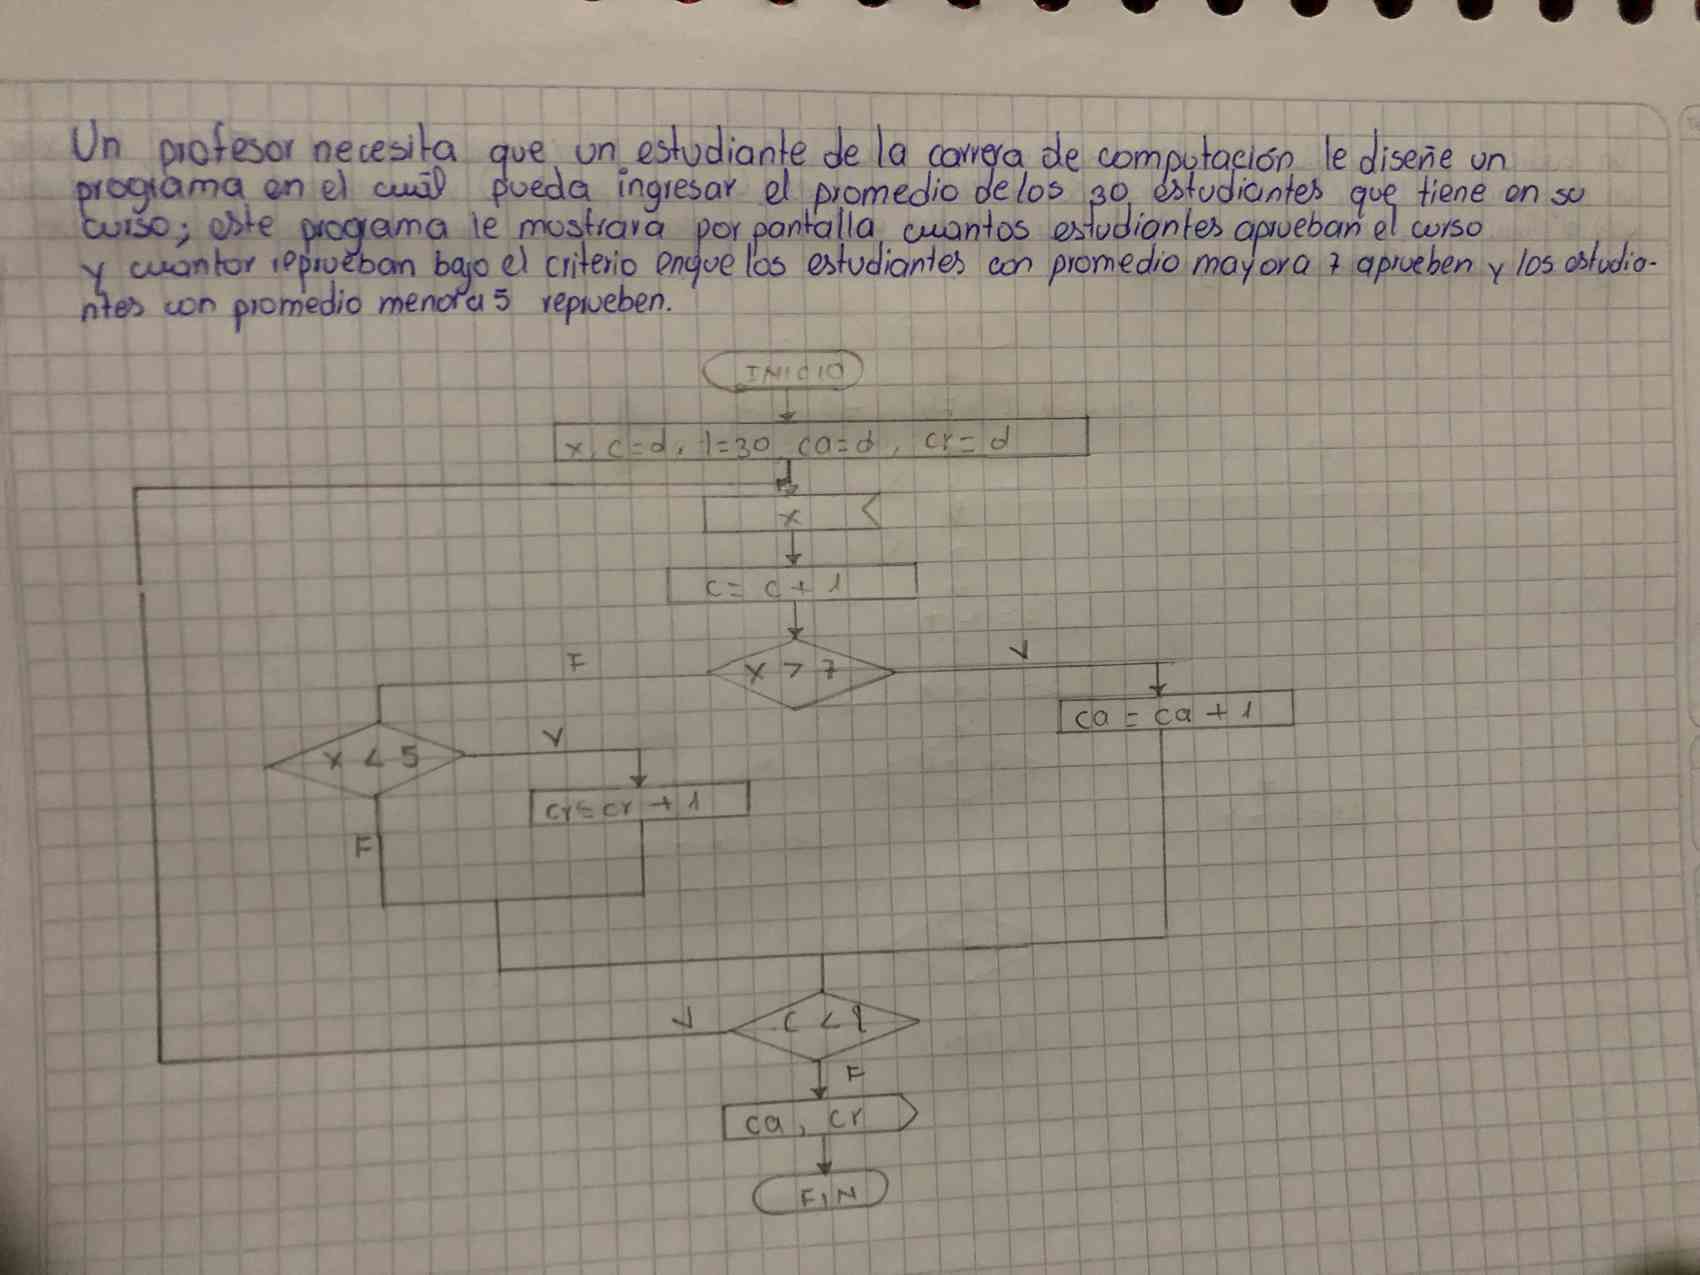 Un profesor necesita que un estudiante de la carrera de computación le diseñe un
programa en el cuál pueda ingresar el promedio de los 30 estudiantes que tiene en su
curso; este progama le mostrara por pantalla cuantos estudiantes aprueban el curso
y cuantor reprueban bajo el criterio enque los estudiantes con promedio mayora 7 aprueben y los estudia-
ntes con promedio menora 5 reprueben.
INICIO
x, c=d, l=30, ca=d, cr=d
x
c= c+1
F
x > 7
V
ca = ca + 1
x < 5
V
cr=cr + 1
F
V
c < l
F
ca, cr
FIN